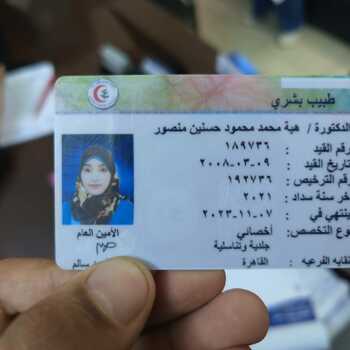 طبيب بشري
الدكتورة / هبة محمد محمود حسنين منصور
رقم القيد : ١٨٩٧٣٦
تاريخ القيد : ٢٠٠٨-٠٣-٠٩
رقم الترخيص : ١٩٢٧٣٦
آخر سنة سداد : ٢٠٢١
ينتهي في : ٢٠٢٣-١١-٠٧
نوع التخصص : أخصائي
جلدية وتناسلية
نقابه الفرعيه : القاهرة
الأمين العام
سالم